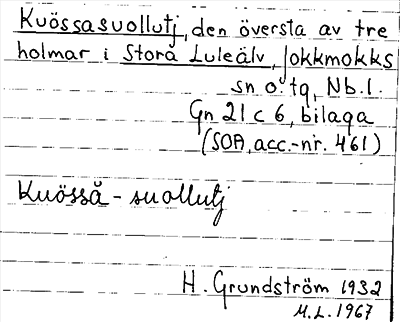 Kuössasuollutj, den översta av tre
holmar i Stora Luleälv, Jokkmokks
sn o tg, Nb.l.
Gn 21 c 6, bilaga
(SOA, acc.-nr. 461)
Kuösså - suollutj
H. Grundström 1932
M.L. 1967